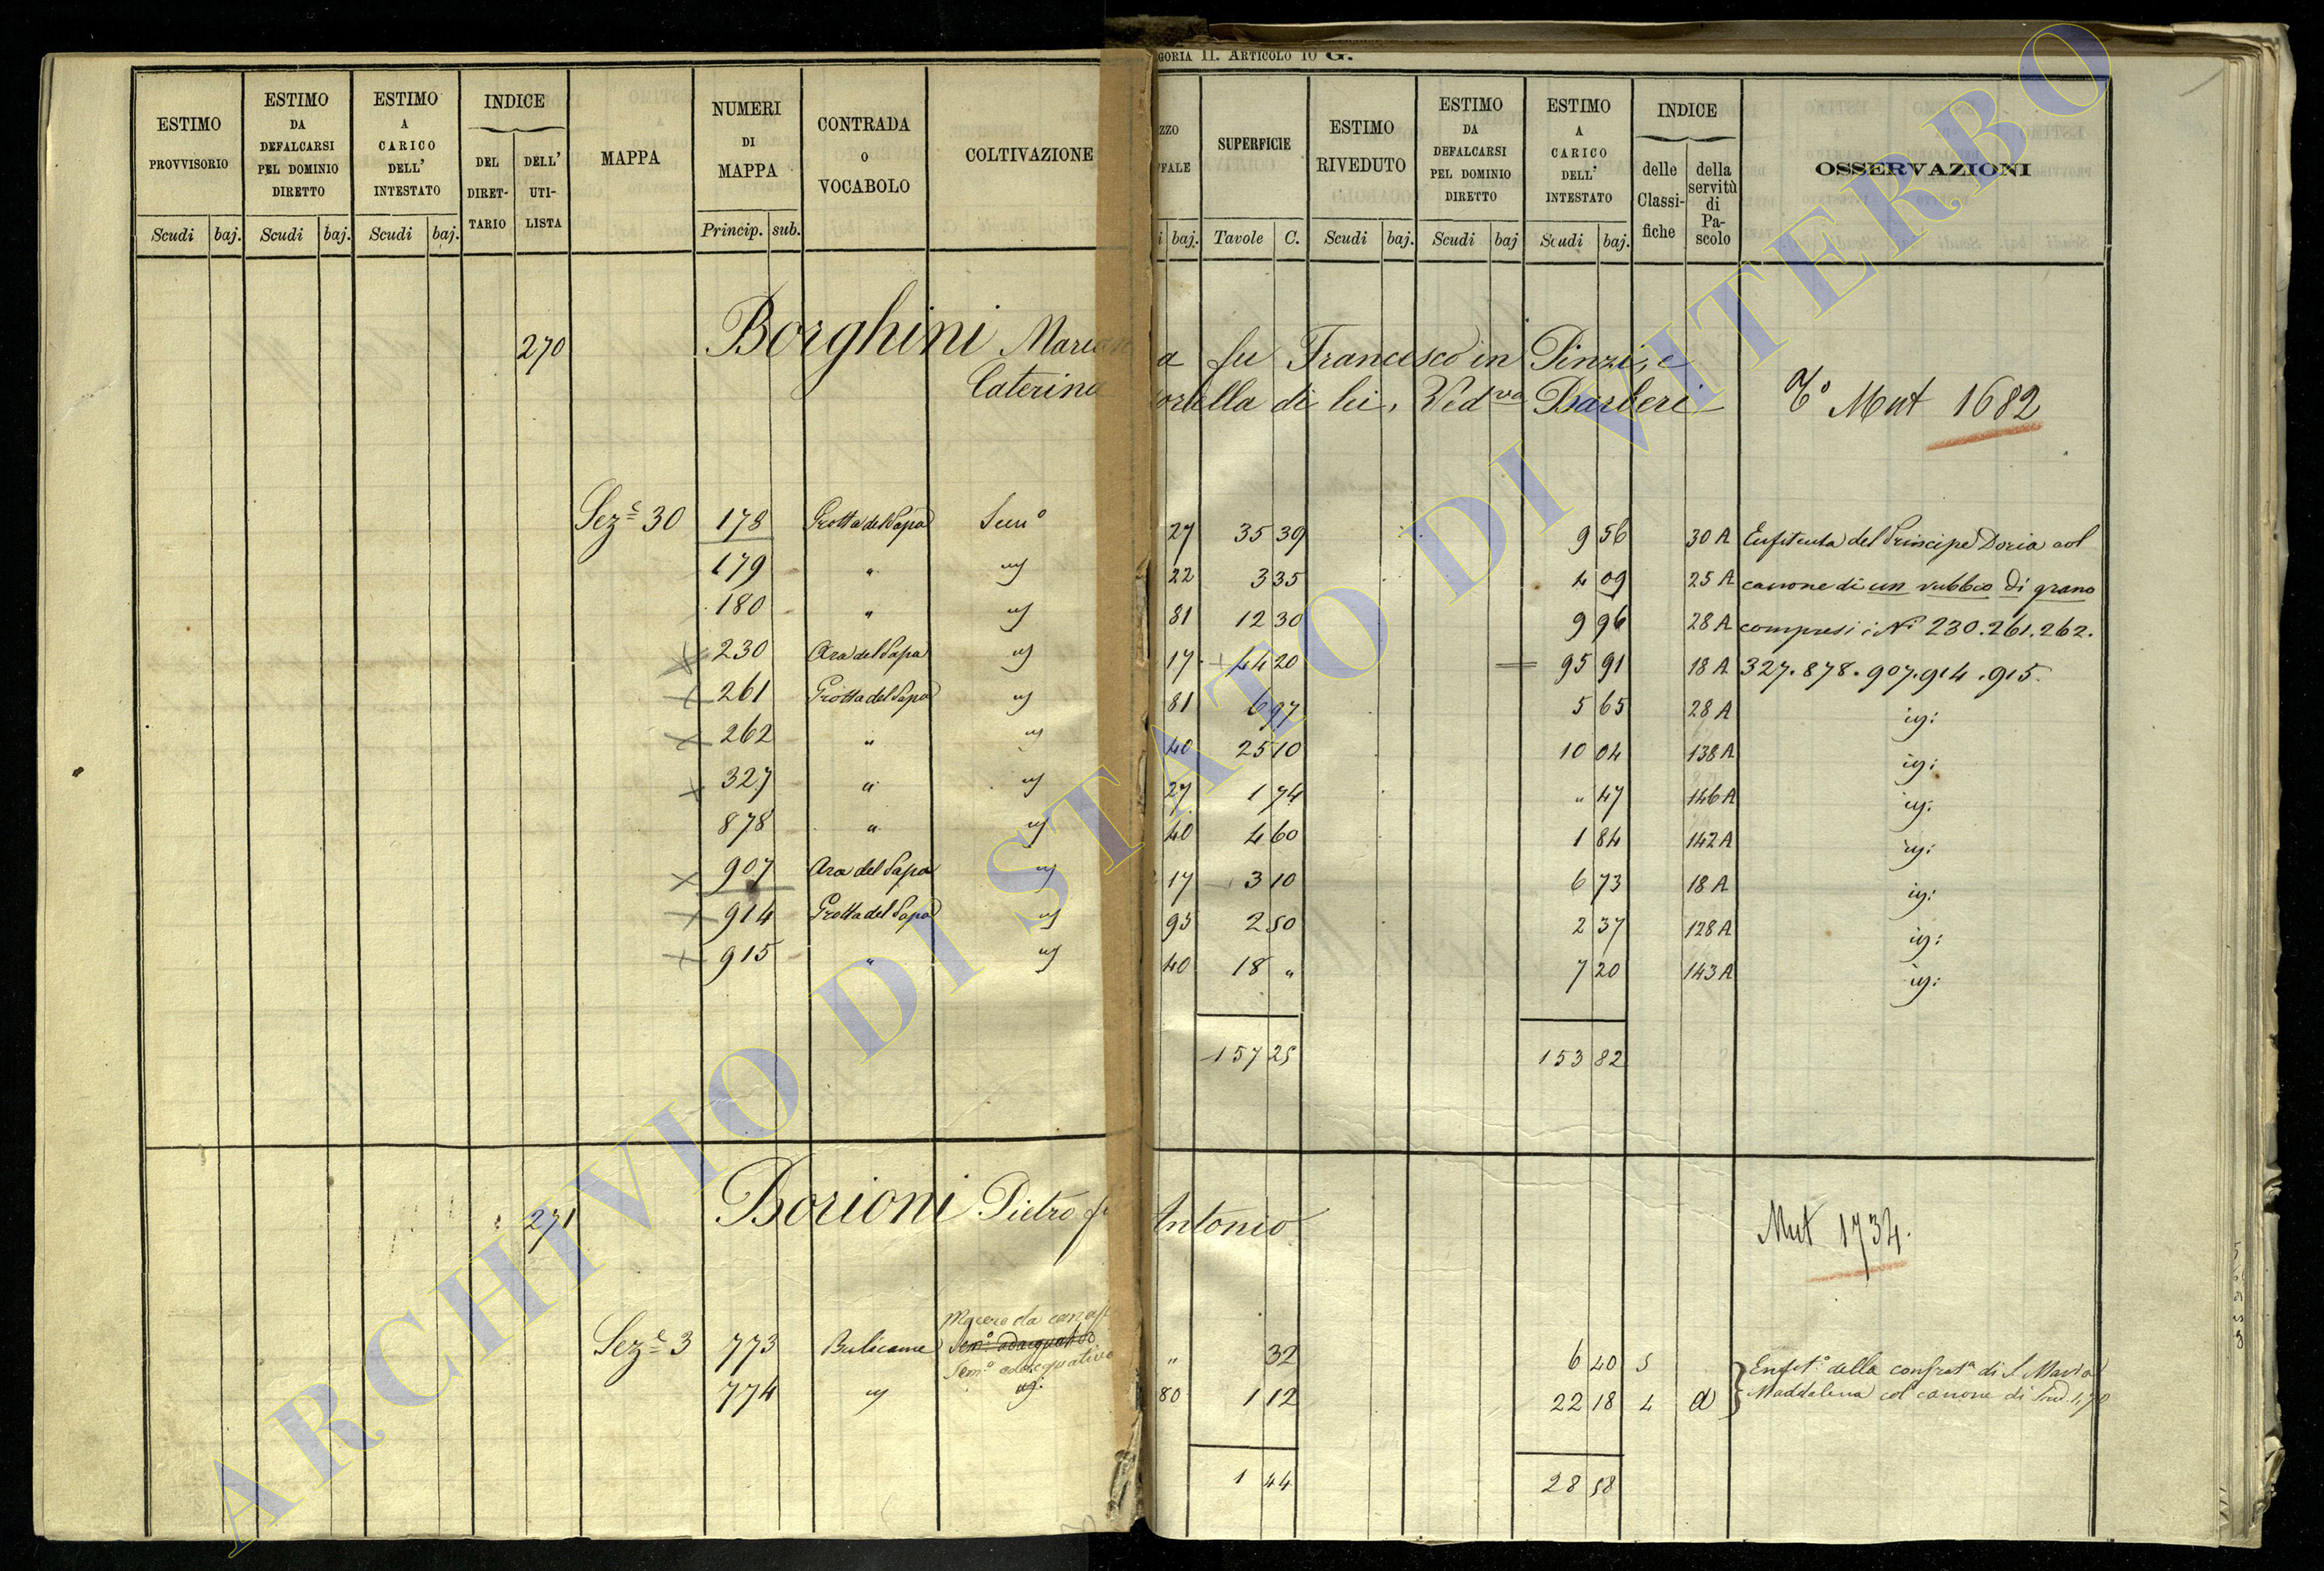 GORIA II. ARTICOLO 10 G.
ESTIMO PROVVISORIO
ESTIMO DA DEFALCARSI PEL DOMINIO DIRETTO
ESTIMO A CARICO DELL' INTESTATO
INDICE
DEL DIRET-TARIO
DELL' UTI-LISTA
MAPPA
NUMERI DI MAPPA
CONTRADA O VOCABOLO
COLTIVAZIONE
ZZO
FALE
SUPERFICIE
ESTIMO RIVEDUTO
ESTIMO DA DEFALCARSI PEL DOMINIO DIRETTO
ESTIMO A CARICO DELL' INTESTATO
INDICE
delle Classi-fiche
della servitù di Pa-scolo
OSSERVAZIONI
Scudi baj. Scudi baj. Scudi baj. Princip. sub. i baj. Tavole C. Scudi baj. Scudi baj Scudi baj.
270 Borghini Marian a fu Francesco in Pinzi, e
Caterina sorella di lei, Ved.va Barberi
T.o Mut 1682
Sez.e 30 178 Grotta del Papa Sem.o 27 35 39 9 56 30 A Enfiteuta del Principe Doria col
179 " id 22 3 35 4 09 25 A canone di un rubbio di grano
180 " id 81 12 30 9 96 28 A compresi i N.i 230.261.262.
230 Ara del Papa id 17 44 20 95 91 18 A 327.878.907.914.915.
261 Grotta del Papa id 81 6 97 5 65 28 A id:
262 " id 40 25 10 10 04 138 A id:
327 " id 27 1 74 " 47 146 A id:
878 " id 40 4 60 1 84 142 A id:
907 Ara del Papa id 17 3 10 6 73 18 A id:
914 Grotta del Papa id 95 2 50 2 37 128 A id:
915 " id 40 18 " 7 20 143 A id:
157 25 153 82
271 Borioni Pietro fu Antonio
Mut 1734.
Macero da canap
Sez.e 3 773 Bulicame Sem.o adacquativo " 32 6 40 5 Enfit.o della confrat.a di S. Maria
Sem.o adacquativo
774 id id: 80 1 12 22 18 4 a Maddalena col canone di Scud. 1,70
1 44 28 58
ARCHIVIO DI STATO DI VITERBO